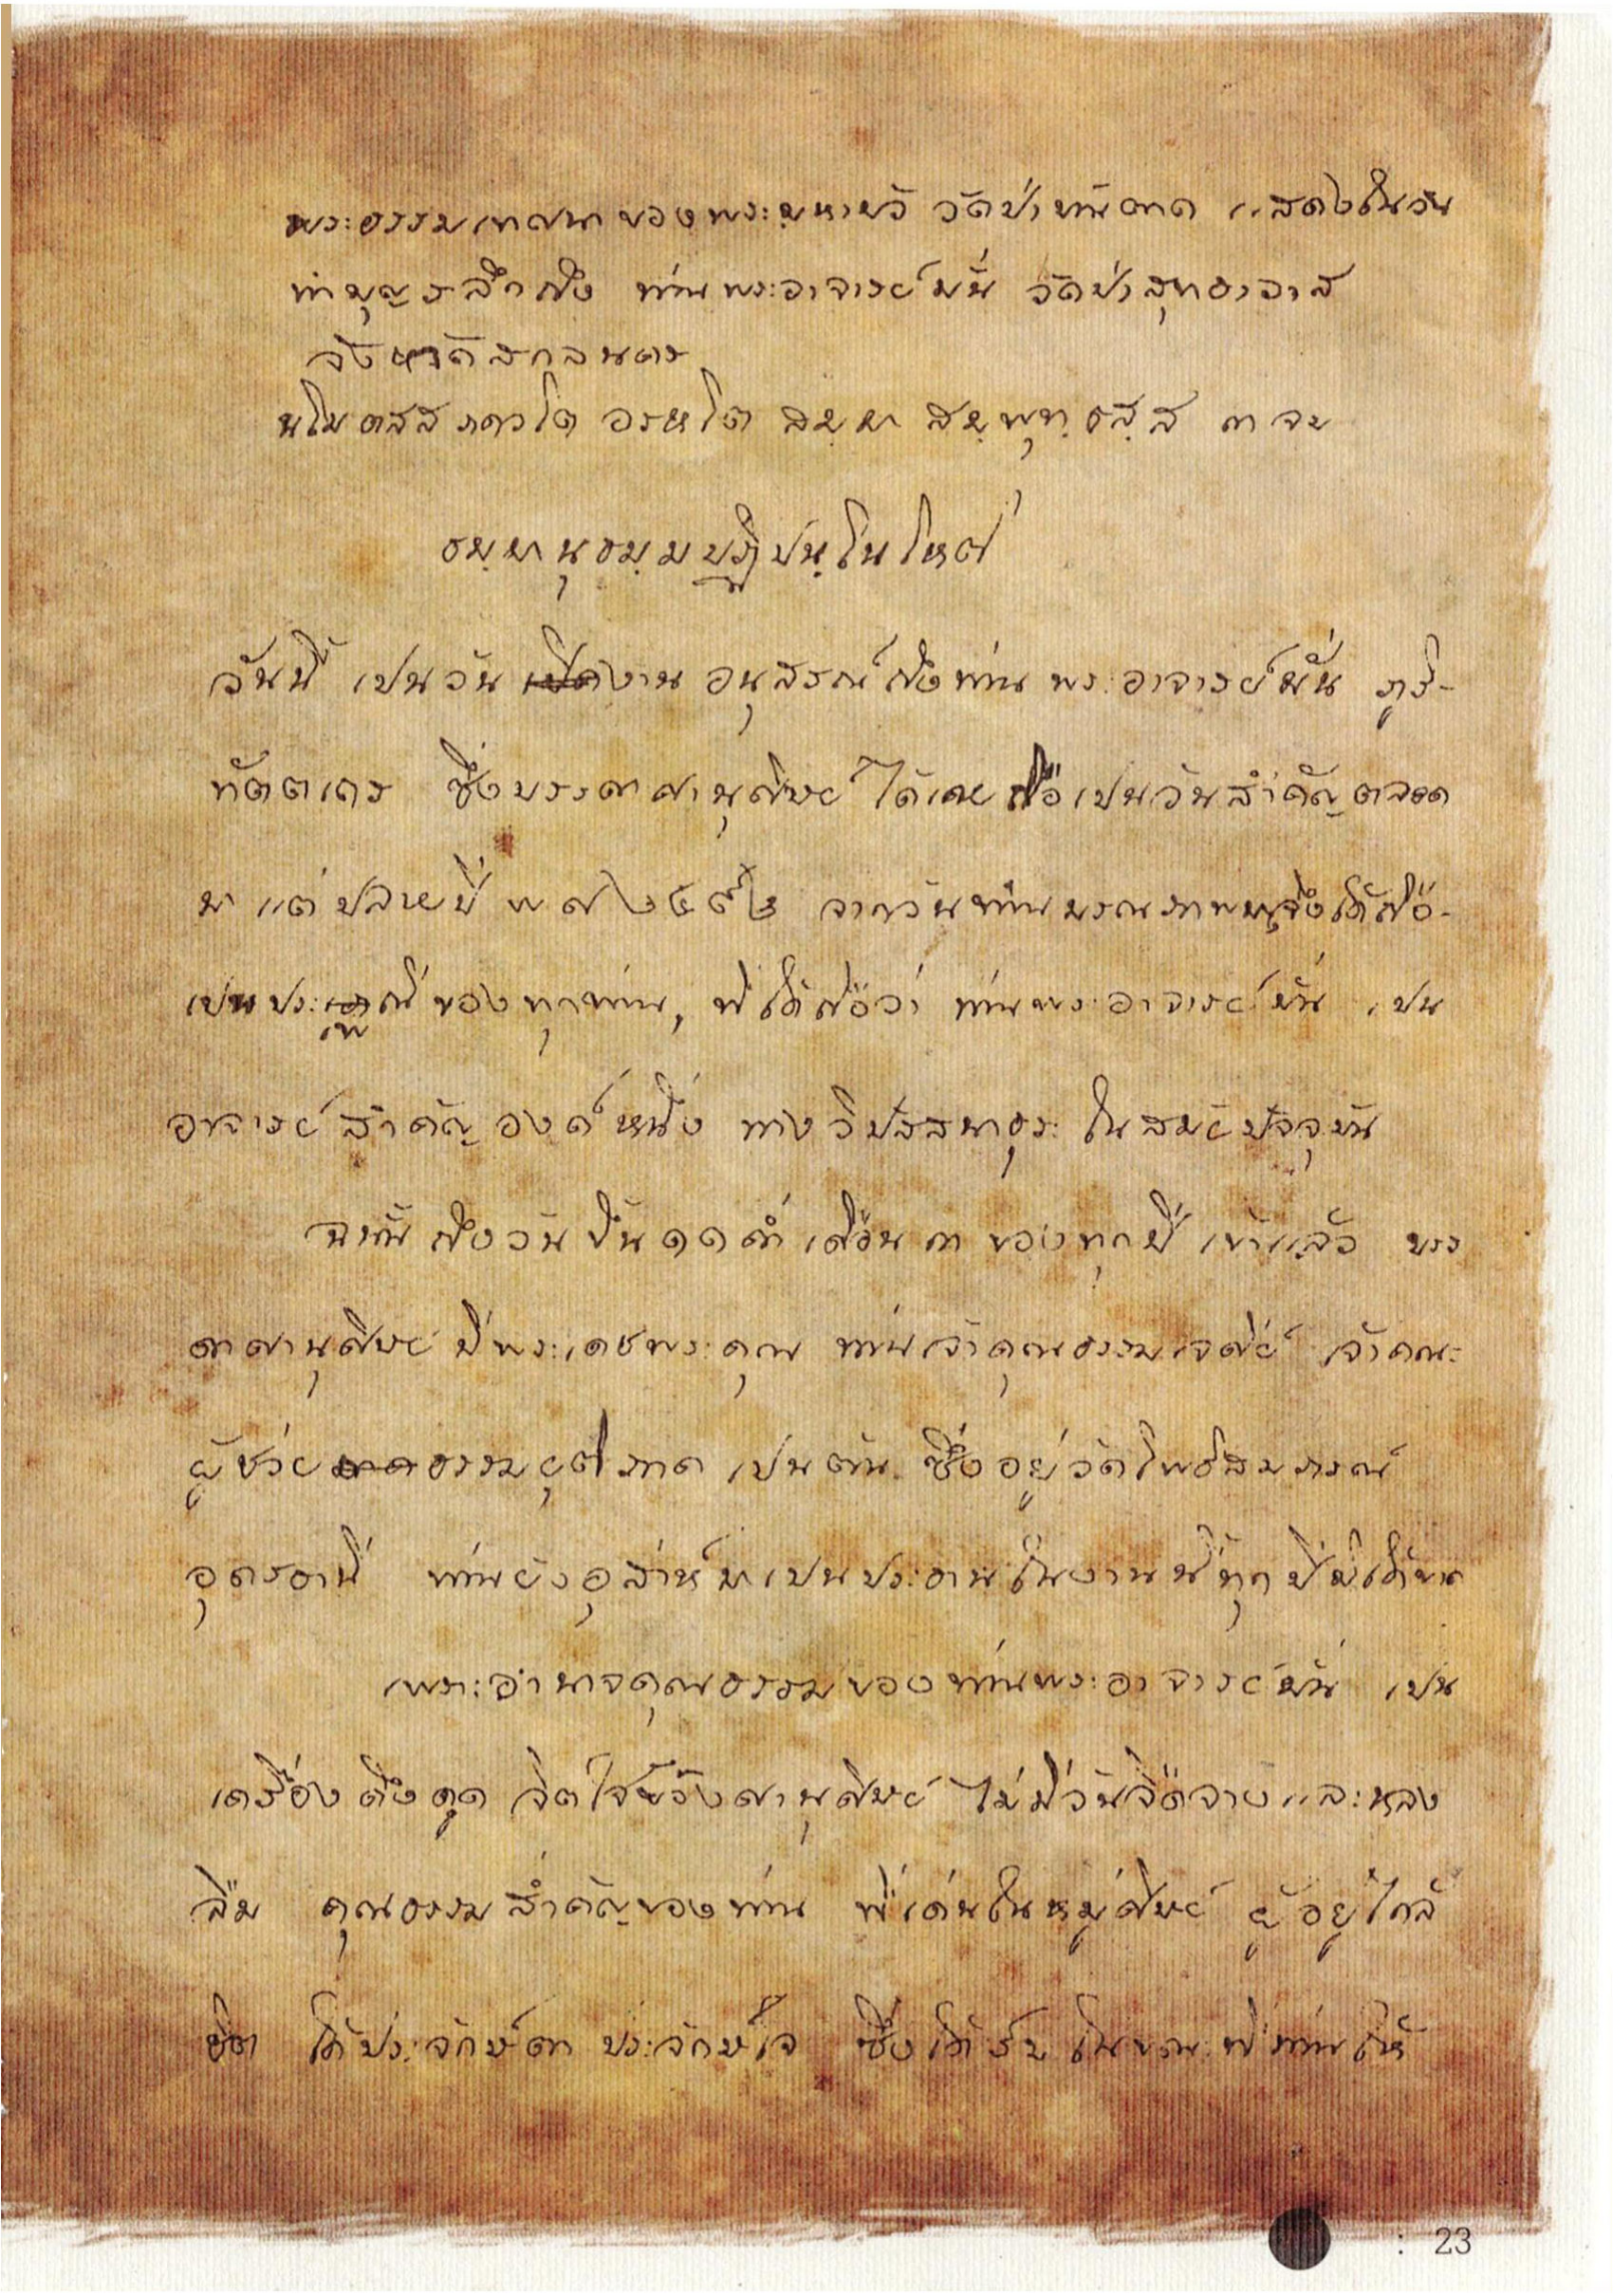 พระธรรมเทศนาของพระมหาบัว วัดป่าบ้านตาด แสดงในวัน
ทำบุญรลึกถึง ท่านพระอาจารย์มั่น วัดป่าสุทธาวาส
จังหวัดสกลนคร
นโม ตสฺส ภควโต อรหโต สมฺมา สมฺพุทฺธสฺส ๓ จบ
ธมฺมานุธมฺมปฏิปนฺโน โหติ
วันนี้ เปนวันงาน อนุสรณ์ถึงท่าน พระอาจารย์มั่น ภูริ-
ทัตตเถร ซึ่งบรรดาศานุศิษย์ ได้เคยถือเปนวันสำคัญตลอด
มา แต่ปลายปี พ ศ ๒๔๙๒ จากวันท่านมรณภาพ จึงได้ถือ-
เปนประเพณีของทุกท่าน, ที่ได้ถือว่า ท่านพระอาจารย์มั่น เปน
อาจารย์สำคัญองค์หนึ่ง ทางวิปัสสนาธุระ ในสมัยปัจจุบัน
ฉนั้น ถึงวันขึ้น ๑๑ ค่ำ เดือน ๓ ของทุกปี เข้าแล้ว บรร
ดาศานุศิษย์ มีพระเดชพระคุณ ท่านเจ้าคุณธรรมเจดีย์ เจ้าคณะ
ผู้ช่วยธรรมยุติภาค เปนต้น ซึ่งอยู่วัดโพธิสมภรณ์
อุดรธานี ท่านยังอุส่าห์มาเปนประธานในงานนี้ทุกปีมิได้ขาด
เพราะอำนาจคุณธรรมของท่านพระอาจารย์มั่น เปน
เครื่องดึงดูด จิตใจของศานุศิษย์ ไม่มีวันจืดจางและหลง
ลืม คุณธรรมสำคัญของท่าน ที่เด่นในหมู่ศิษย์ ผู้อยู่ใกล้
ชิด ได้ประจักษ์ตา ประจักษ์ใจ ซึ่งได้รับ ในขณะที่ท่านให้
: 23